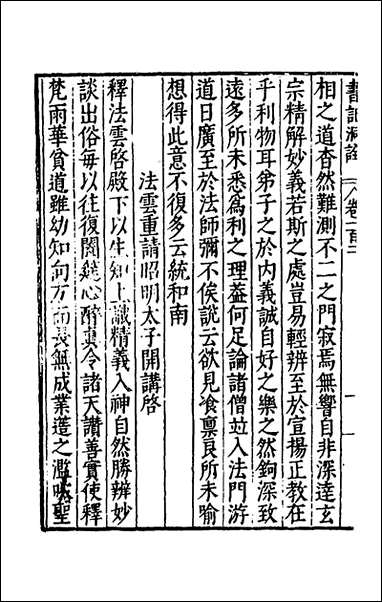 書記洞詮 卷一百二
相之道杳然難測不二之門寂焉無響自非深達玄
宗精解妙義若斯之處豈易輕辨至於宣揚正教在
乎利物耳弟子之於內義誠自好之樂之然鉤深致
遠多所未悉爲利之理葢何足論諸僧竝入法門游
道日廣至於法師彌不俟說云欲見飡稟良所未喻
想得此意不復多云統和南
法雲重請昭明太子開講啓
釋法雲啓殿下以生知上識精義入神自然勝辨妙
談出俗毎以往復闡鏡心醉真令諸天讚善實使釋
梵雨華貧道雖幼知向方而長無成業遥之濫吹聖